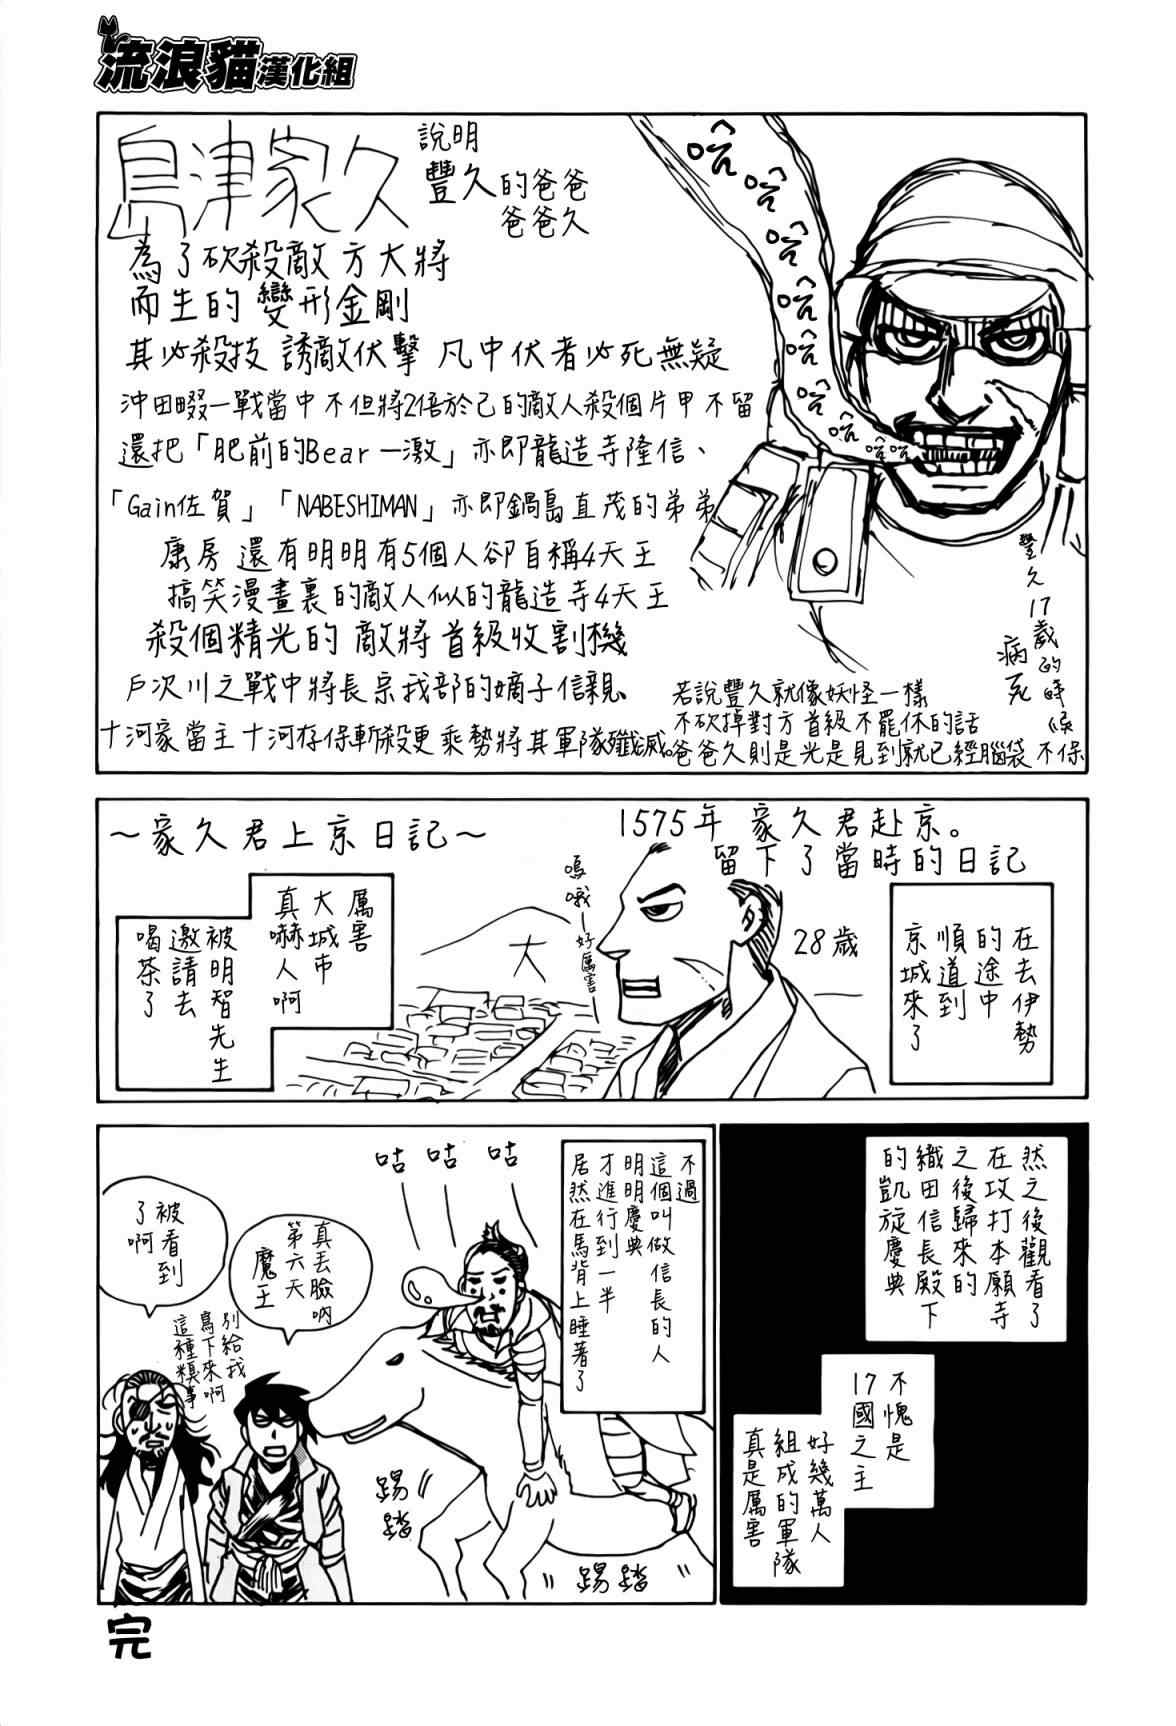 流浪貓漢化組
島津家久
說明
豐久的爸爸
爸爸久
為了砍殺敵方大將
而生的變形金剛
其必殺技 誘敵伏擊 凡中伏者必死無疑
沖田畷一戰當中不但將2倍於己的敵人殺個片甲不留
還把「肥前的Bear一激」亦即龍造寺隆信、
「Gain佐賀」「NABESHIMAN」亦即鍋島直茂的弟弟
康房 還有明明有5個人卻自稱4天王
搞笑漫畫裏的敵人似的龍造寺4天王
殺個精光的 敵將首級收割機
戶次川之戰中將長宗我部的嫡子信親、
十河家當主十河存保斬殺更乘勢將其軍隊殲滅。
哈
哈
哈
哈
哈
哈
哈
哈哈
豐久17歲的時候
病死
若說豐久就像妖怪一樣
不砍掉對方首級不罷休的話
爸爸久則是光是見到就已經腦袋不保
～家久君上京日記～
1575年 家久君赴京。
留下了當時的日記
在去伊勢
的途中
順道到
京城來了
28歲
嗚哦—好厲害—
大
厲害
大城市
真嚇人啊
被明智先生
邀請去
喝茶了
然之後觀看了
在攻打本願寺
之後歸來的
織田信長殿下
的凱旋慶典
不愧是
17國之主
好幾萬人
組成的軍隊
真是厲害
不過
這個叫做信長的人
明明慶典
才進行到一半
居然在馬背上睡著了
咕 咕 咕
真丟臉吶
第六天
魔王
被看到
了啊
別給我
寫下來啊
這種糗事
踢踏
踢踏
完